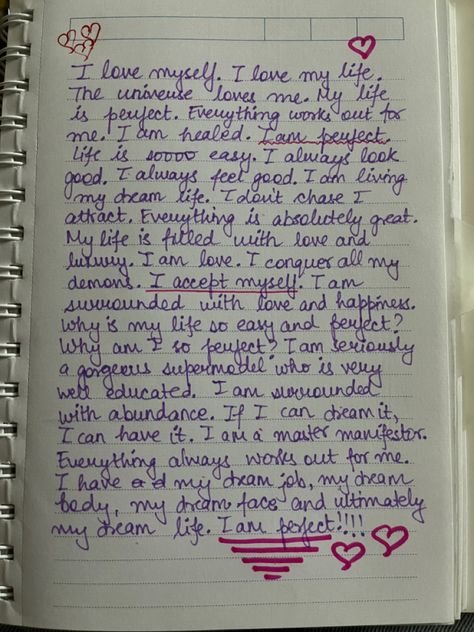 I love myself. I love my life.
The universe loves me. My life
is perfect. Everything works out for
me. I am healed. I am perfect.
Life is soooo easy. I always look
good. I always feel good. I am living
my dream life. I don't chase I
attract. Everything is absolutely great.
My life is filled with love and
luxury. I am love. I conquer all my
demons. I accept myself. I am
surrounded with love and happiness.
Why is my life so easy and perfect?
Why am I so perfect? I am seriously
a gorgeous supermodel who is very
well educated. I am surrounded
with abundance. If I can dream it,
I can have it. I am a master manifestor.
Everything always works out for me.
I have my dream job, my dream
body, my dream face and ultimately
my dream life. I am perfect!!!!